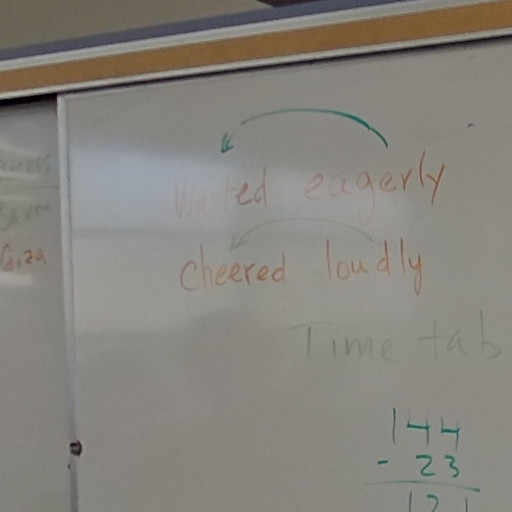 Giza
Waited eagerly
cheered loudly
Time tab
144
- 23
121